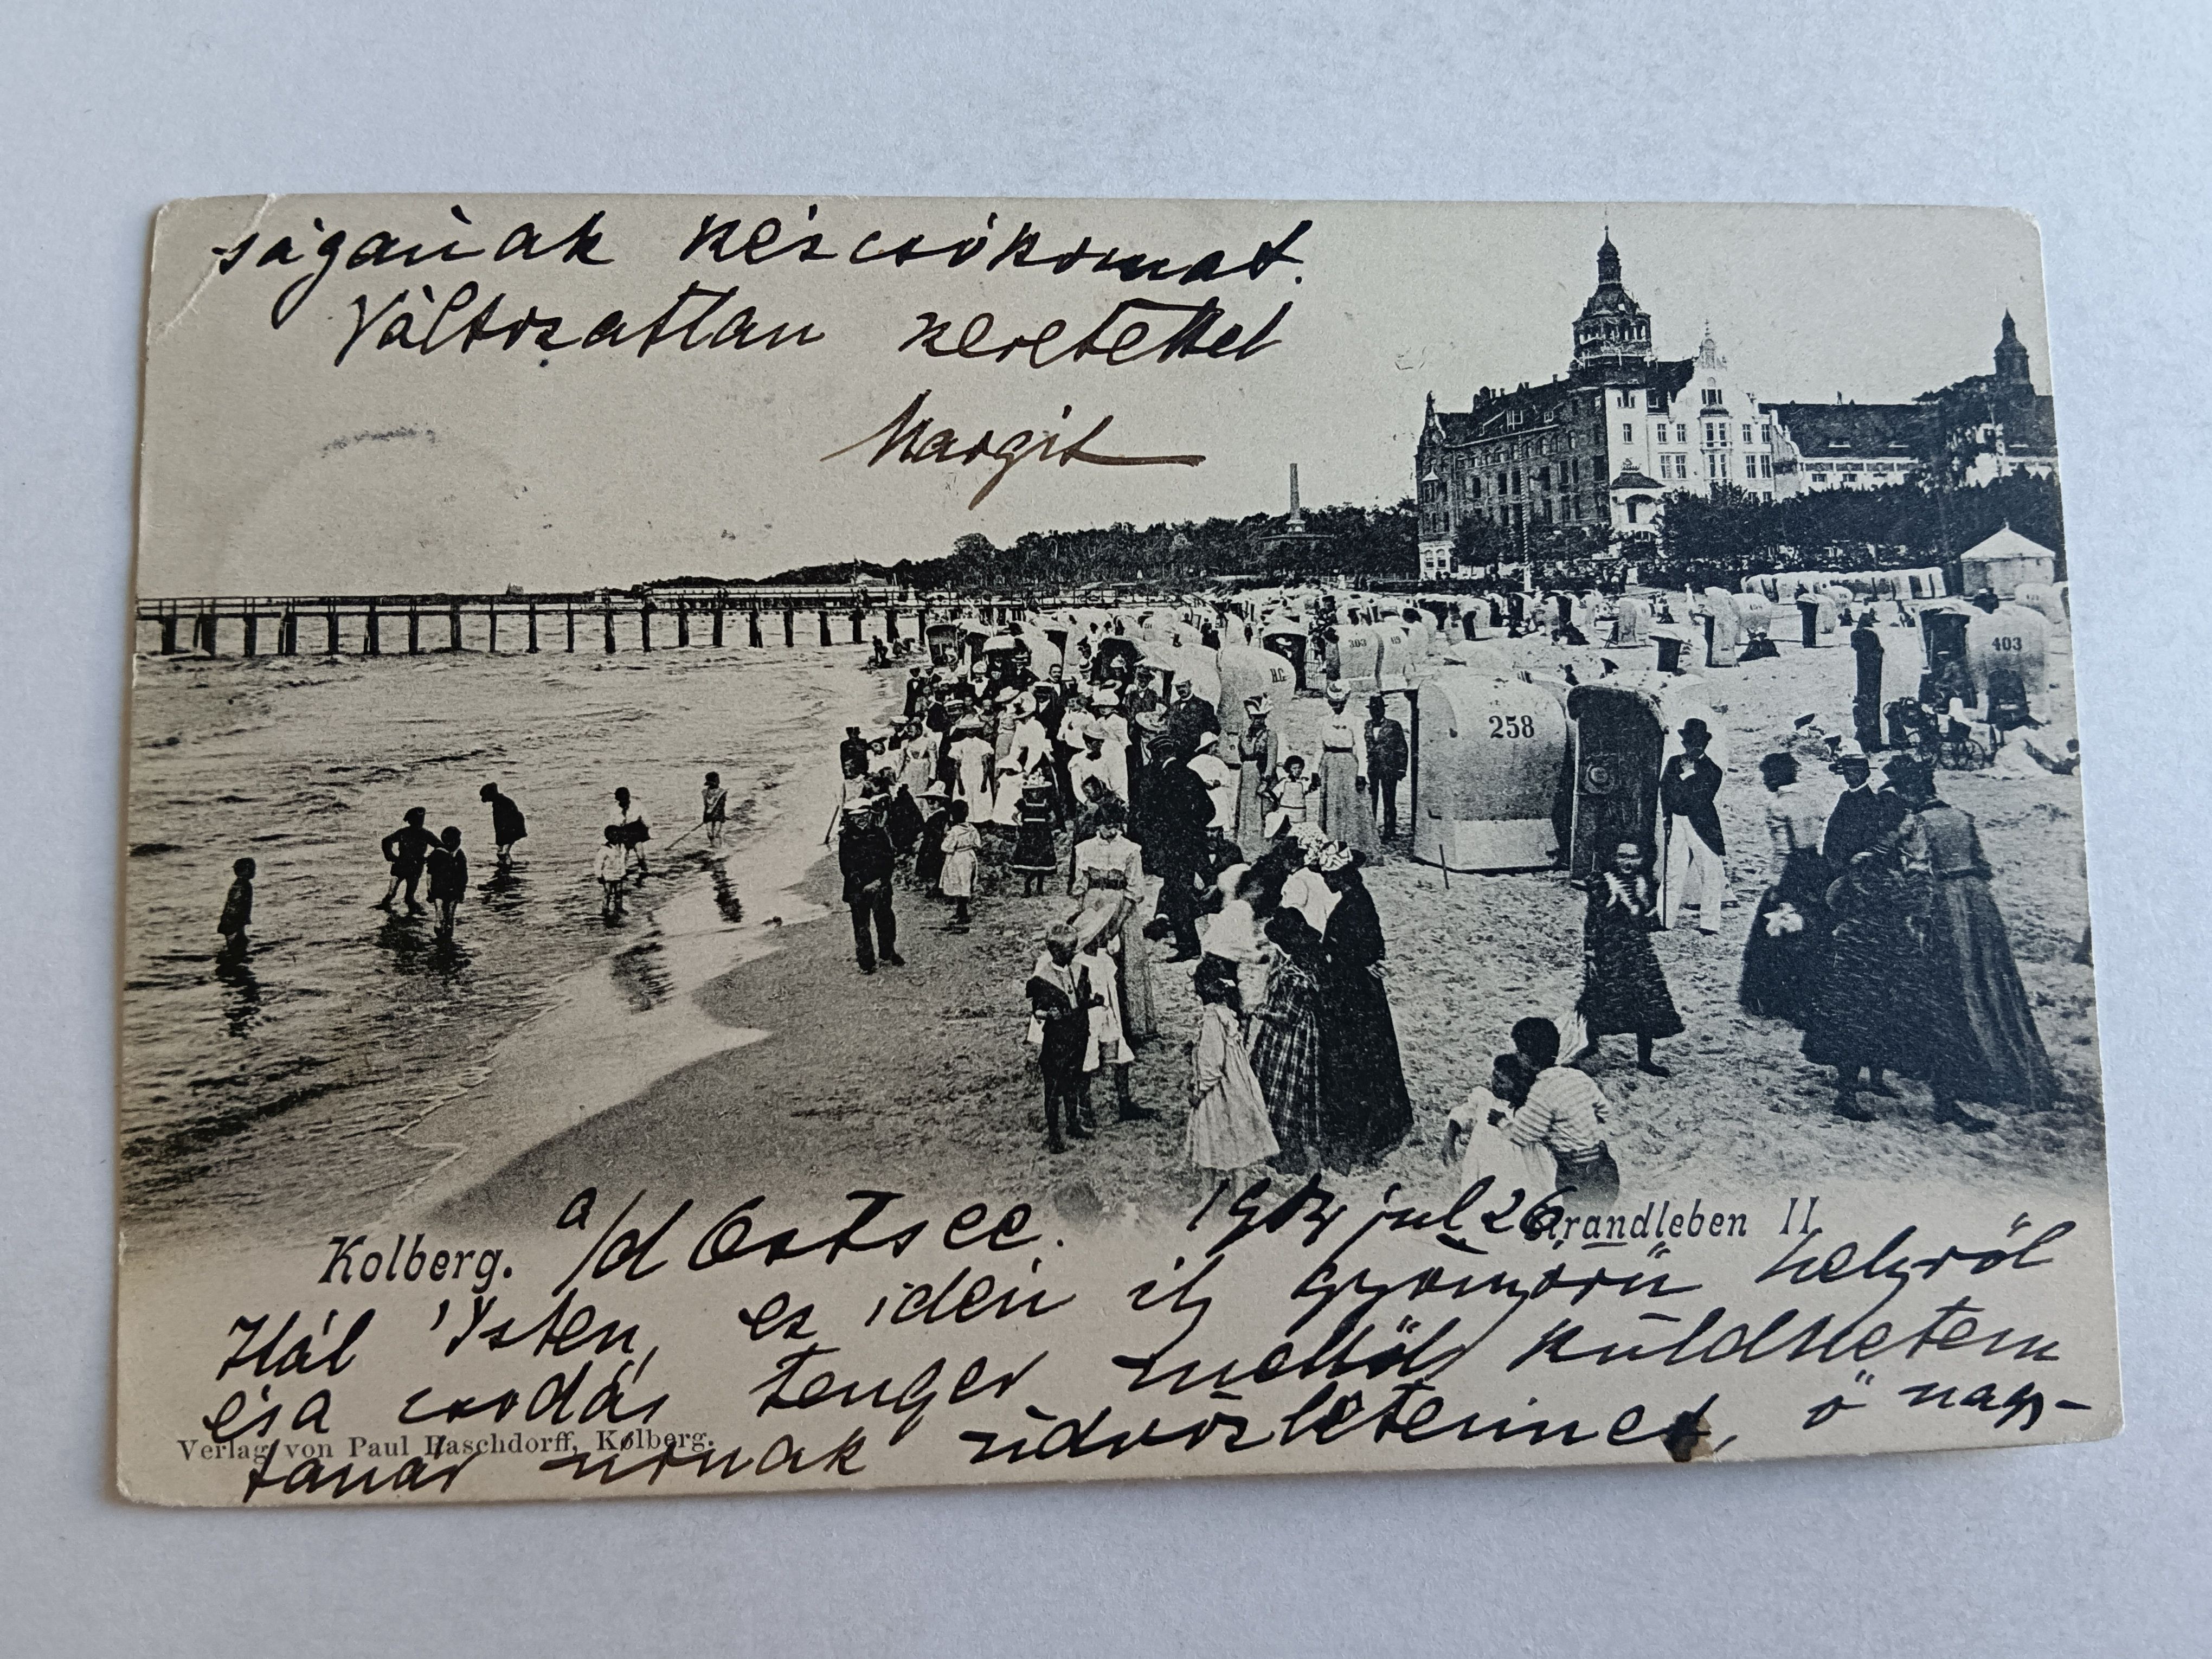 ságának kézcsókomat.
Változatlan szeretettel
Margit
303
H.C.
258
403
Kolberg. a/d Ostsee. 1904 jul 26 Strandleben II
Hál' Isten, ez idén ily gyönyörü helyről
és a csodás tenger mellől küldhetem
tanár úrnak üdvözletemet, ő nagy-
Verlag von Paul Raschdorff, Kolberg.